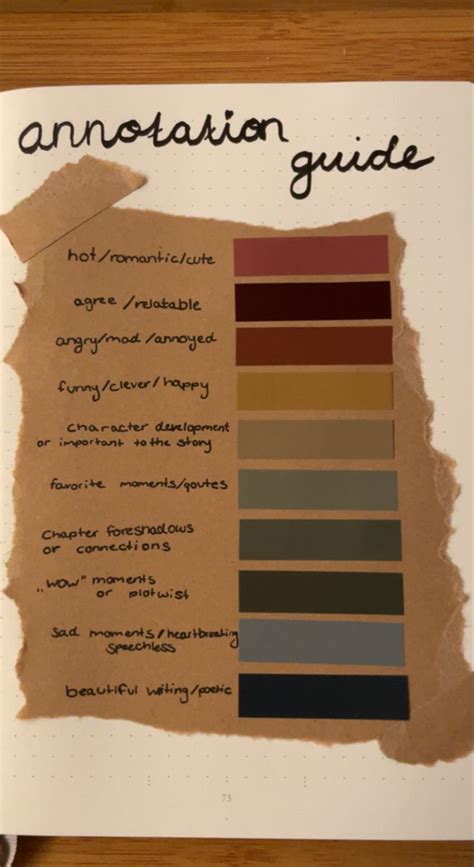 annotation
guide
hot/romantic/cute
agree/relatable
angry/mad/annoyed
funny/clever/happy
character development
or important to the story
favorite moments/qoutes
Chapter foreshadows
or connections
„wow" moments
or plotwist
Sad moments/heartbreaking
speechless
beautiful writing/poetic
73